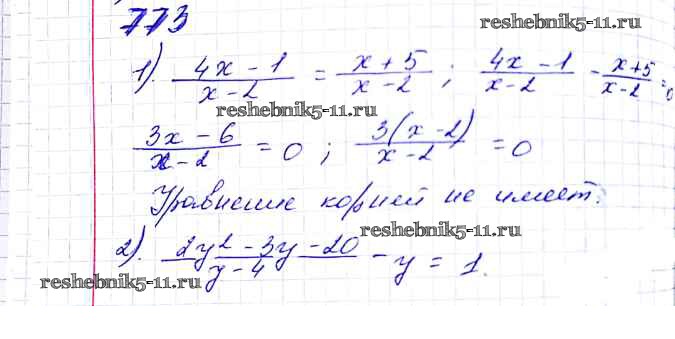 773
reshebnik5-11.ru
1). (4x - 1)/(x - 2) = (x + 5)/(x - 2) ; (4x - 1)/(x - 2) - (x+5)/(x-2) = 0
reshebnik5-11.ru
(3x - 6)/(x - 2) = 0 ; 3(x - 2)/(x - 2) = 0
Уравнение корней не имеет.
reshebnik5-11.ru
2). (2y² - 3y - 20)/(y - 4) - y = 1.
reshebnik5-11.ru